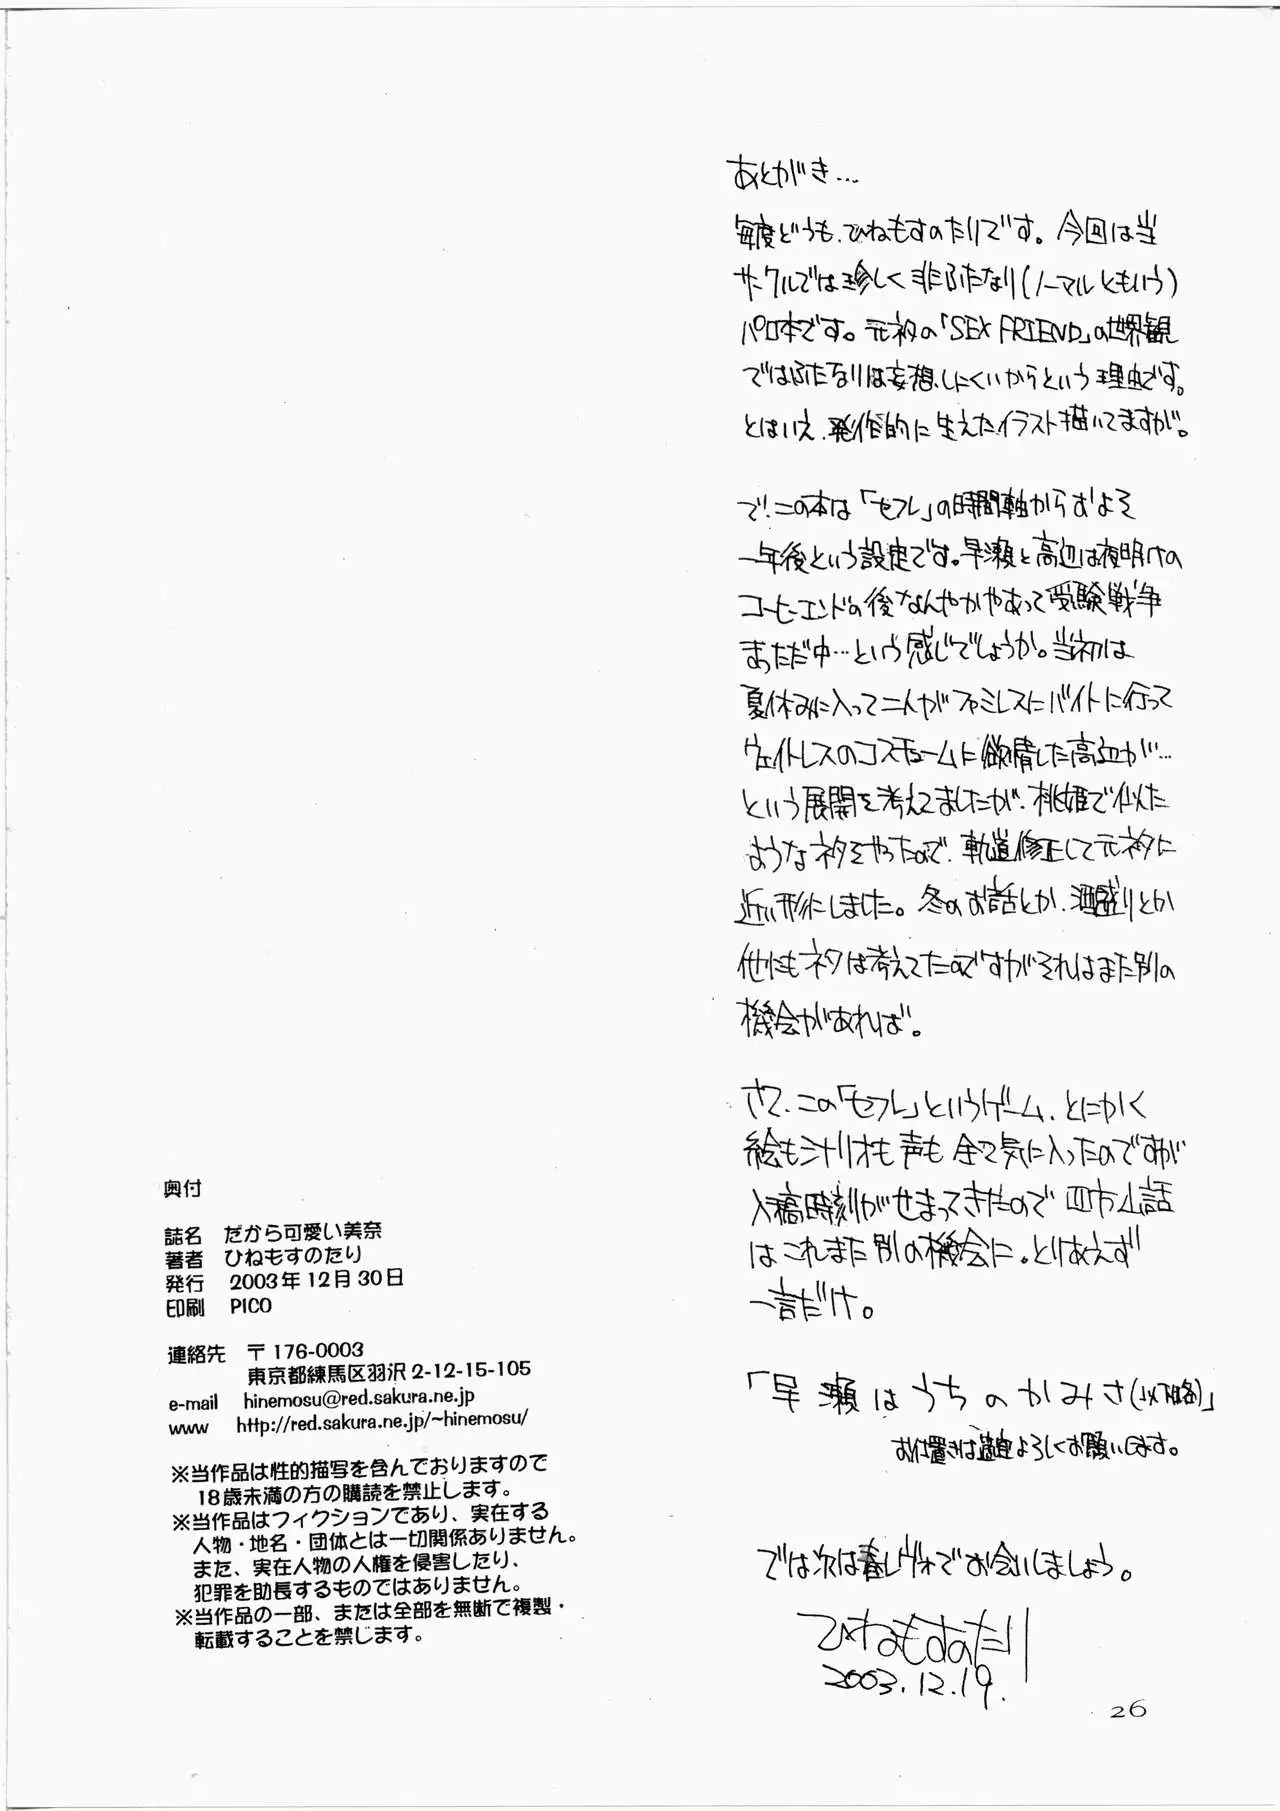 あとがき…
毎度どうも、ひねもすのたりです。今回は当
サークルでは珍しく非ふたなり(ノーマルともいう)
パロ本です。元ネタの「SEX FRIEND」の世界観
ではふたなりは妄想しにくいからという理由です。
とはいえ、発作的に生えたイラスト描いてますが。
で、この本は「セフレ」の時間軸からおよそ
一年後という設定です。早瀬と高辺は夜明けの
コーヒーエンドの後なんやかやあって受験戦争
まっただ中…という感じでしょうか。当初は
夏休みに入って二人がファミレスにバイトに行って
ウェイトレスのコスチュームに欲情した高辺が…
という展開を考えてましたが、桃姫で似た
ようなネタをやったので、軌道修正して元ネタに
近い形にしました。冬のお話とか、酒盛りとか
他にもネタは考えてたのですがそれはまた別の
機会があれば。
さて、この「セフレ」というゲーム、とにかく
絵もシナリオも声も全て気に入ったのですが
入稿時刻がせまってきたので四方山話
はこれまた別の機会に。とりあえず
一言だけ。
「早瀬はうちのかみさ(以下略)」
お仕置きは適宜よろしくお願いします。
では次は春レヴォでお会いしましょう。
ひねもすのたり
2003.12.19.
26
奥付
誌名 だから可愛い美奈
著者 ひねもすのたり
発行 2003年12月30日
印刷 PICO
連絡先 〒176-0003
東京都練馬区羽沢2-12-15-105
e-mail hinemosu@red.sakura.ne.jp
www http://red.sakura.ne.jp/~hinemosu/
※当作品は性的描写を含んでおりますので
18歳未満の方の購読を禁止します。
※当作品はフィクションであり、実在する
人物・地名・団体とは一切関係ありません。
また、実在人物の人権を侵害したり、
犯罪を助長するものではありません。
※当作品の一部、または全部を無断で複製・
転載することを禁じます。